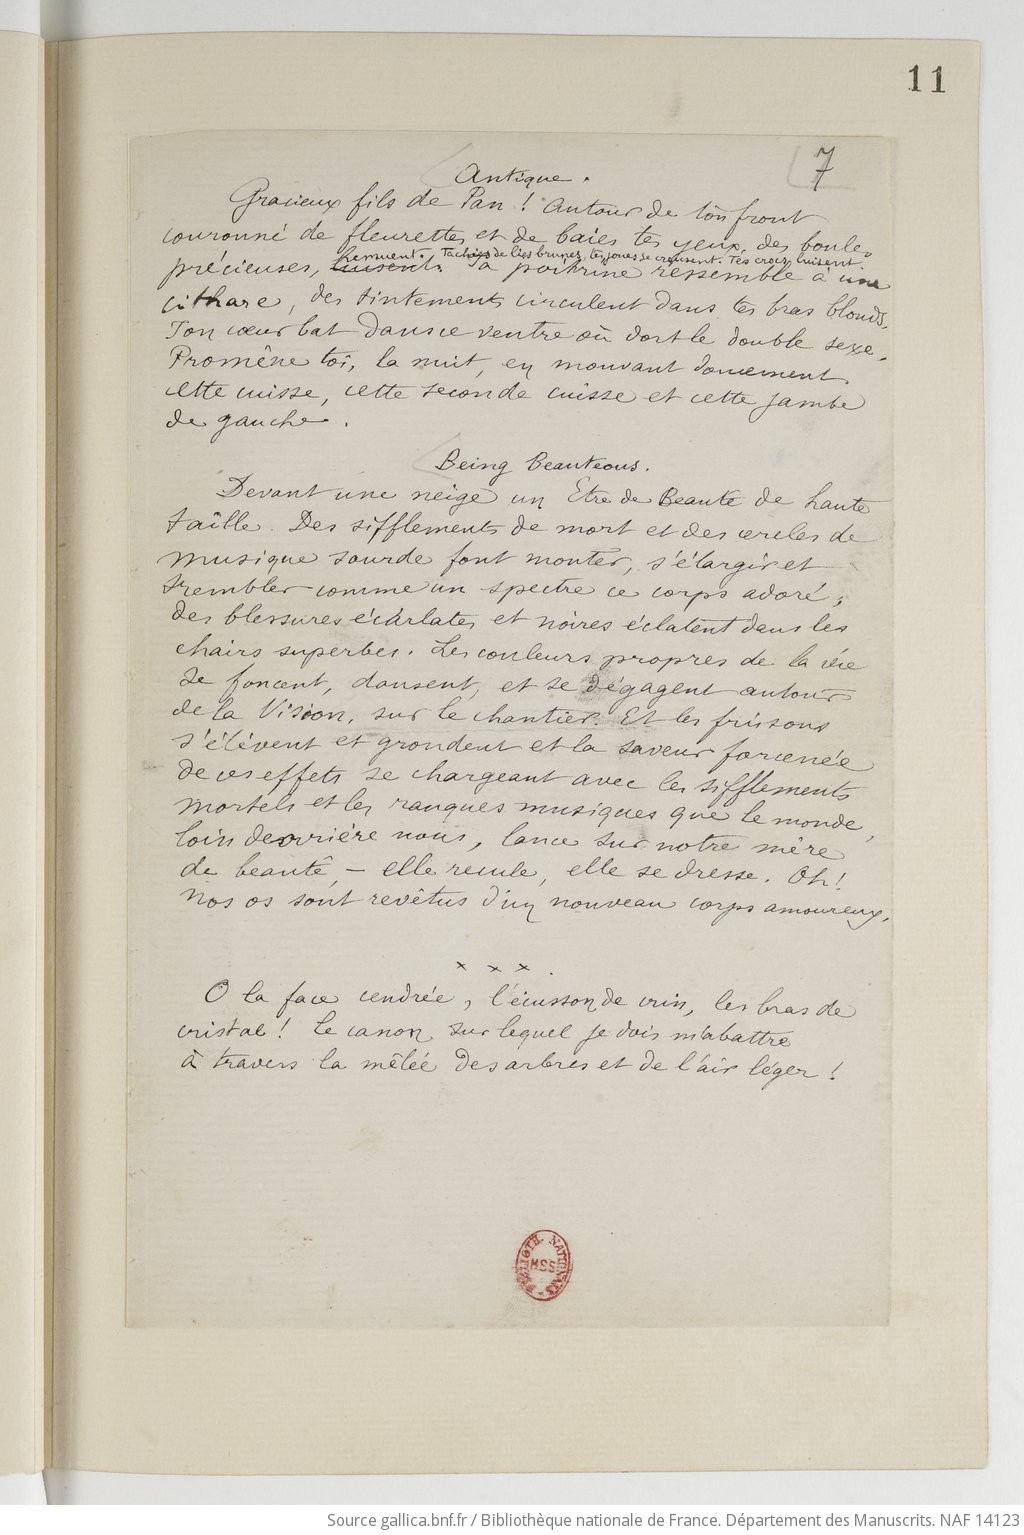 11
7
Antique.
Gracieux fils de Pan ! Autour de ton front
couronné de fleurettes et de baies tes yeux, des boules
remuent. Tachées de lies brunes, tes joues se creusent. Tes crocs luisent.
précieuses, luisent. Ta poitrine ressemble à une
cithare, des tintements circulent dans tes bras blonds.
Ton cœur bat dans ce ventre où dort le double sexe.
Promène toi, la nuit, en mouvant doucement
cette cuisse, cette seconde cuisse et cette jambe
de gauche.
Being Beauteous.
Devant une neige un Etre de Beauté de haute
taille. Des sifflements de mort et des cercles de
musique sourde font monter, s'élargir et
trembler comme un spectre ce corps adoré ;
des blessures écarlates et noires éclatent dans les
chairs superbes. Les couleurs propres de la vie
se foncent, dansent, et se dégagent autour
de la Vision, sur le chantier. Et les frissons
s'élèvent et grondent et la saveur forcenée
de ces effets se chargeant avec les sifflements
mortels et les rauques musiques que le monde,
loin derrière nous, lance sur notre mère
de beauté, — elle recule, elle se dresse. Oh !
nos os sont revêtus d'un nouveau corps amoureux.
x x x .
O la face cendrée, l'écusson de crin, les bras de
cristal ! Le canon sur lequel je dois m'abattre
à travers la mêlée des arbres et de l'air léger !
BIBLIOTH. NATIONALE
MSS
Source gallica.bnf.fr / Bibliothèque nationale de France. Département des Manuscrits. NAF 14123